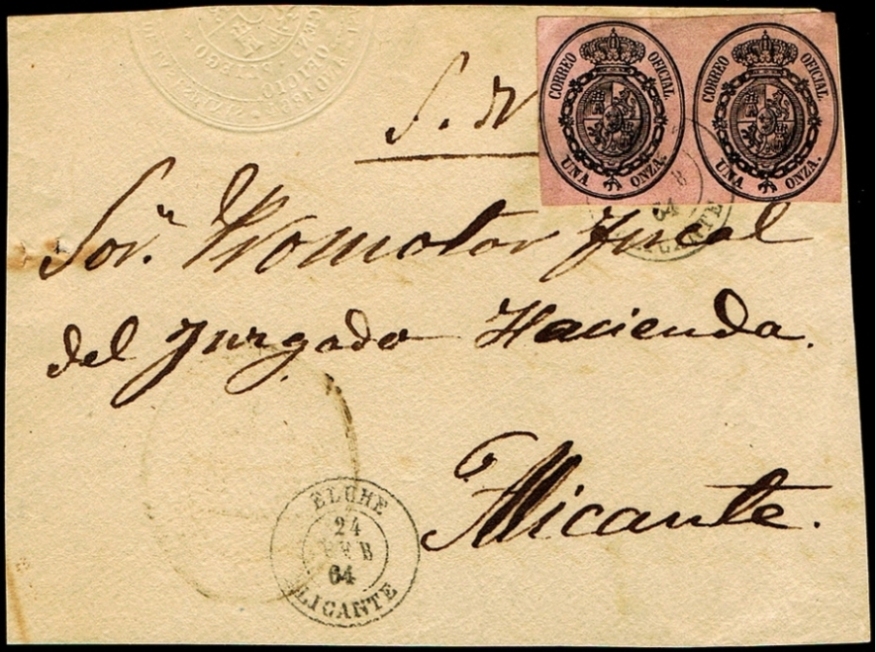 S. N
CORREO OFICIAL.
UNA ONZA.
CORREO OFICIAL.
UNA ONZA.
Sor. Promotor fiscal
del Juzgado Hacienda.
Alicante.
ELCHE
24
FEB
64
ALICANTE
64